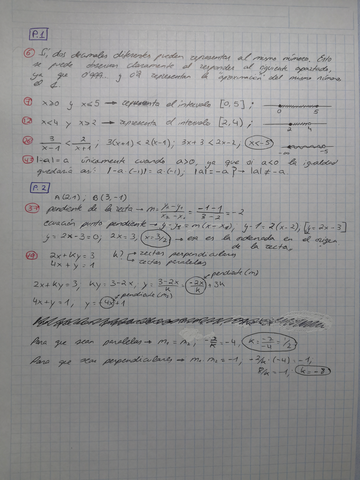 P.1
⑥ Sí, dos decimales diferentes pueden representar al mismo número. Esto
se puede observar claramente al responder al siguiente apartado,
ya que 0'999... y representan la aproximación del mismo número
el 1
x≥0 y x<5 → representa el intervalo [0,5];
0 5
x<4 y x≥2 → representa el intervalo [2,4);
2 4
3/(x-1) < 2/(x+1), 3(x+1) < 2(x-1); 3x+3 < 2x-2, x<-5
-∞ -5
|-a|=a únicamente cuando a>0, ya que si a<0 la igualdad
quedaría así: |-a·(-1)| = a·(-1), |a|=-a? → |a|≠-a
P.2
A(2,1), B(3,-1)
pendiente de la recta → m = (y₂-y₁)/(x₂-x₁) = (-1-1)/(3-2) = -2
ecuación punto pendiente → y-y₀ = m(x-x₀), y-1=2(x-2), y=2x-3
y=2x-3=0; 2x=3, x=3/2 → esa es la ordenada en el origen
de la recta,
2x+ky=3
4x+y=1
k? rectas perpendiculares
rectas paralelas
pendiente (m)
2x+ky=3, ky=3-2x, y=(3-2x)/k = -2x/k + 3/k
pendiente (m₂)
4x+y=1, y=-4x+1
Para que sean paralelas → m₁=m₂, -2/k=-4, k=-2/-4=1/2
Para que sean perpendiculares → m₁·m₂=-1, -2/k·(-4)=-1,
8/k=-1, k=-8